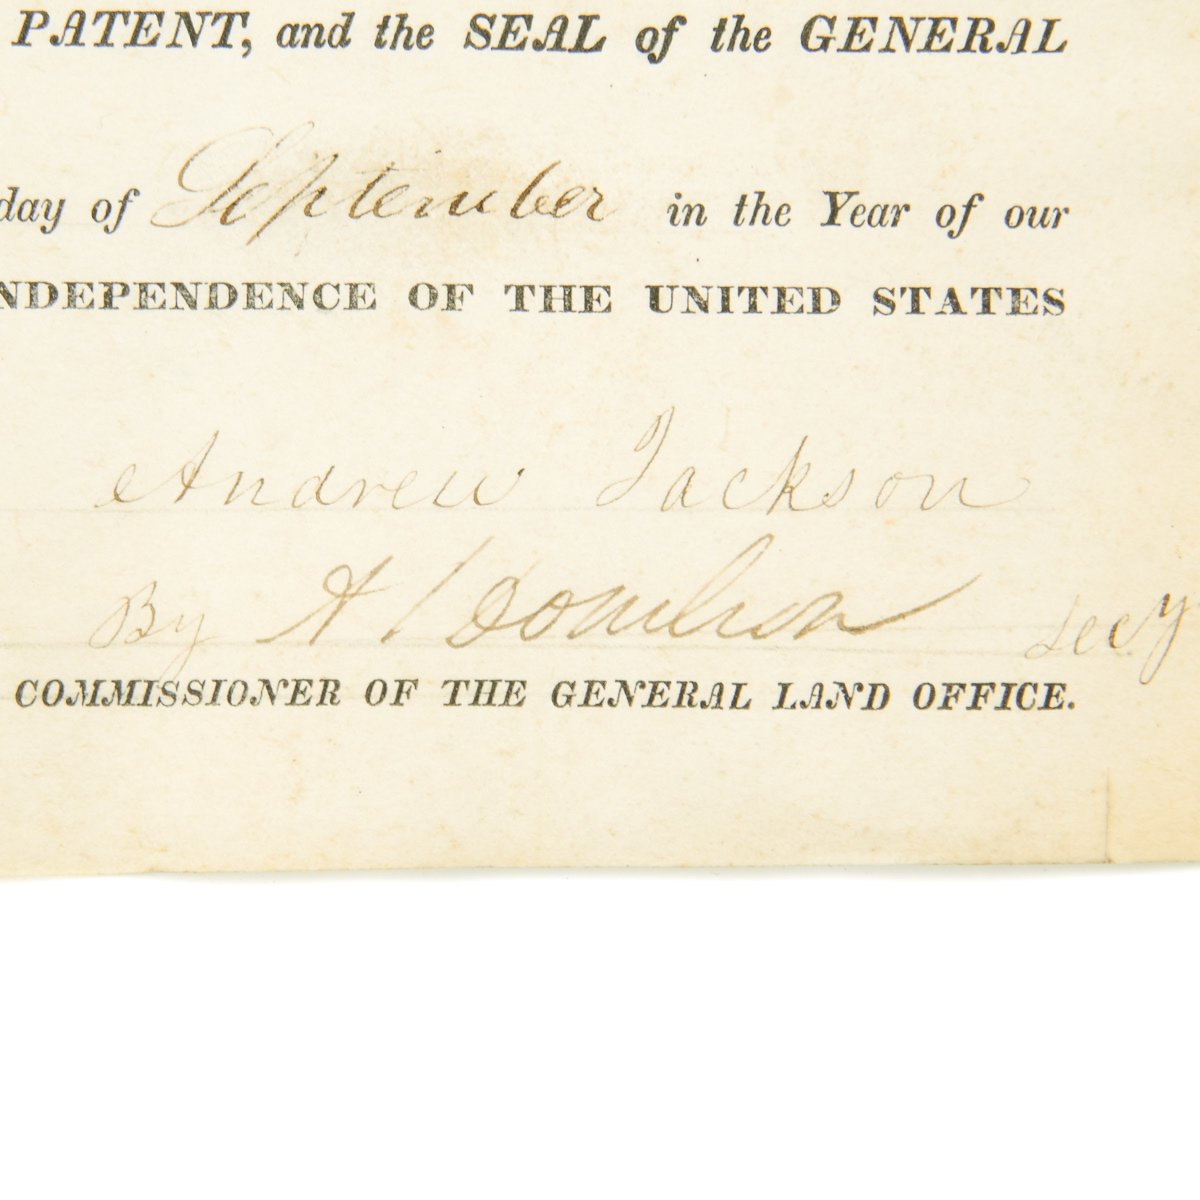 PATENT, and the SEAL of the GENERAL
day of September in the Year of our
NDEPENDENCE OF THE UNITED STATES
Andrew Jackson
By A J Donelson Secy
COMMISSIONER OF THE GENERAL LAND OFFICE.